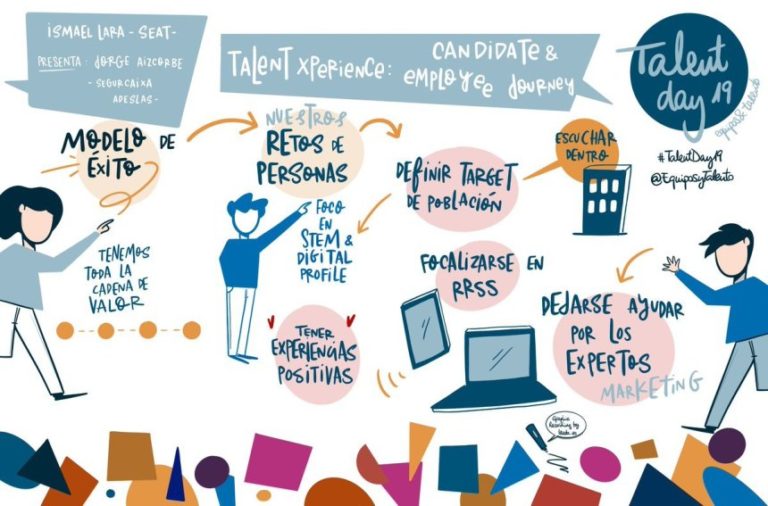 ISMAEL LARA - SEAT-
PRESENTA: JORGE AIZCORBE
- SEGURCAIXA
ADESLAS-
TALENT XPERIENCE:
CANDIDATE &
EMPLOYEE JOURNEY
Talent
day 19
equipos& talento
#TalentDay19
@EquiposyTalento
MODELO DE
ÉXITO
TENEMOS
TODA LA
CADENA DE
VALOR
NUESTROS
RETOS DE
PERSONAS
FOCO
EN
STEM &
DIGITAL
PROFILE
TENER
EXPERIENCIAS
POSITIVAS
DEFINIR TARGET
DE POBLACIÓN
ESCUCHAR
DENTRO
FOCALIZARSE EN
RRSS
DEJARSE AYUDAR
POR LOS
EXPERTOS
MARKETING
Graphic
Recording by